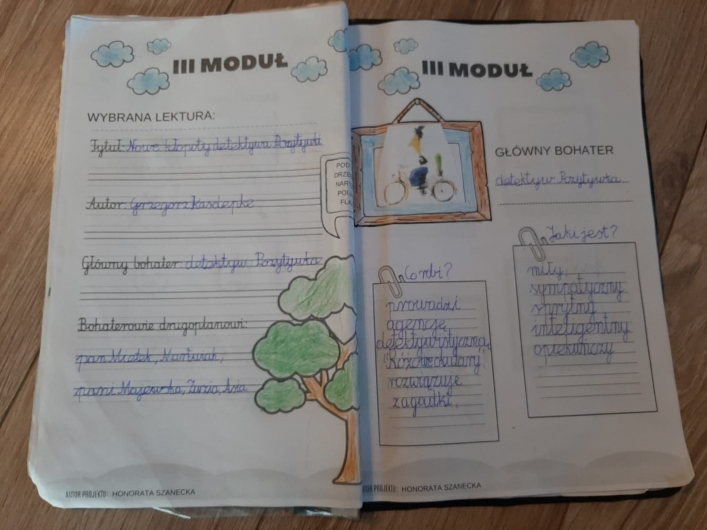 III MODUŁ
WYBRANA LEKTURA:
Tytuł: Nowe kłopoty detektywa Pozytywki
Autor: Grzegorz Kasdepke
Główny bohater: detektyw Pozytywka
Bohaterowie drugoplanowi:
pan Mietek, Martwiak,
pani Majewska, Zuzia, Asia
AUTOR PROJEKTU: HONORATA SZANECKA
III MODUŁ
GŁÓWNY BOHATER
detektyw Pozytywka
Co robi?
prowadzi
agencję
detektywistyczną
"Różowe okulary"
rozwiązuje
zagadki.
Jaki jest?
miły,
sympatyczny
sprytny
inteligentny
opiekuńczy
PROJEKTU: HONORATA SZANECKA